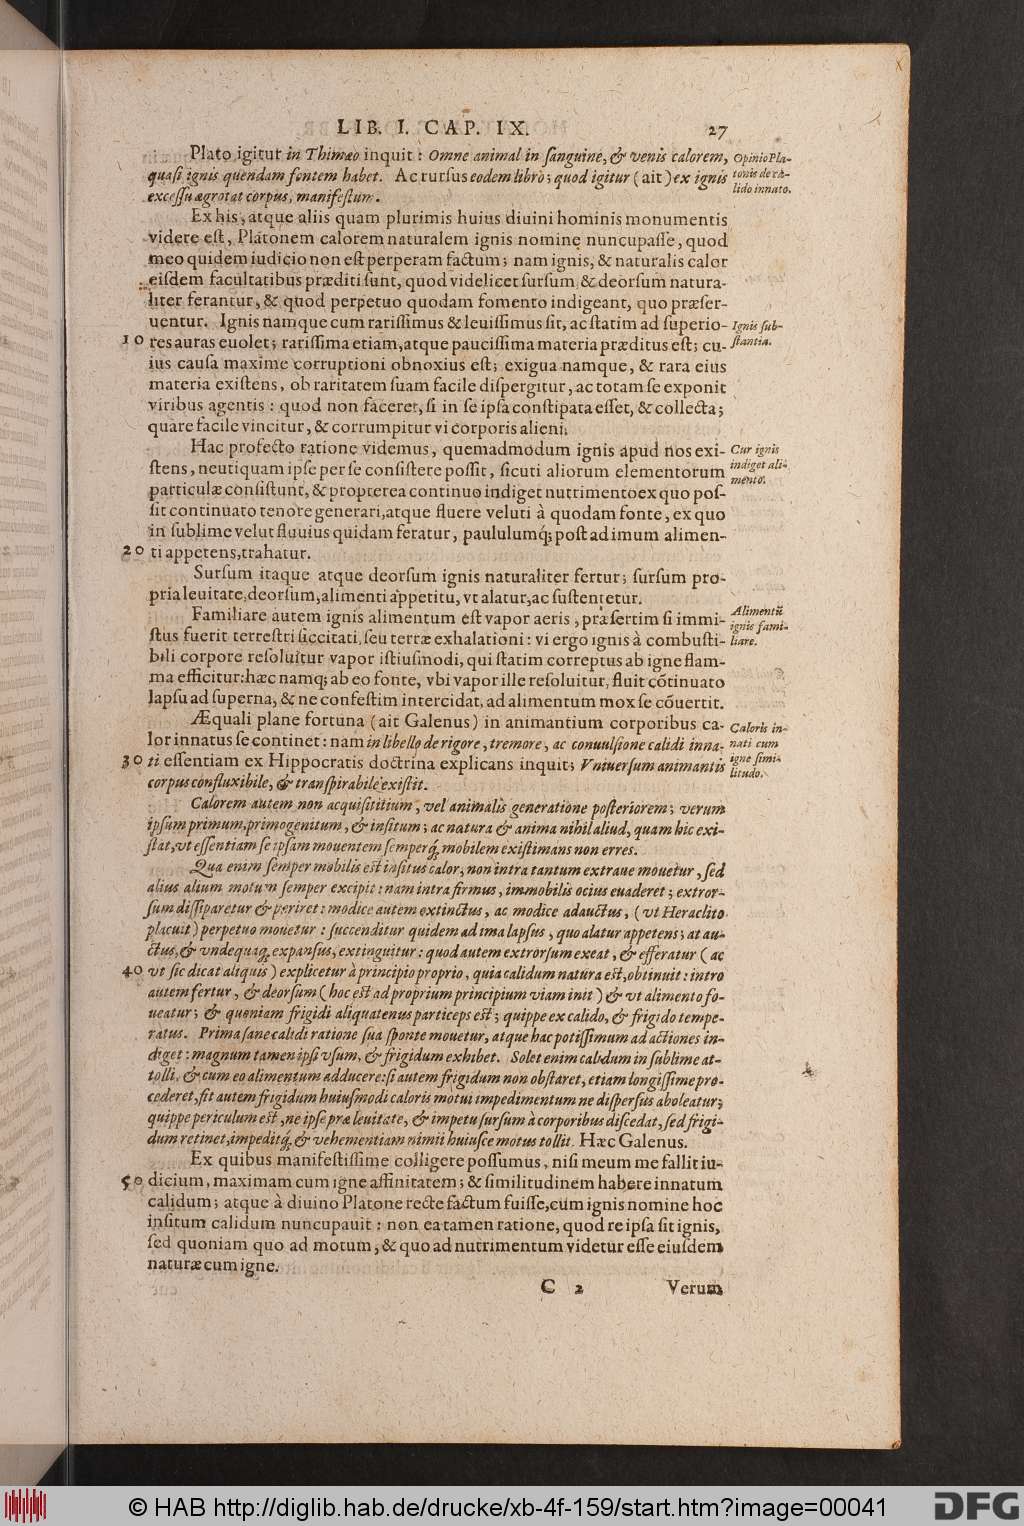 LIB. I. CAP. IX. 27
Plato igitur in Thimæo inquit : Omne animal in ſanguine, & venis calorem,
quaſi ignis quendam fontem habet. Ac rurſus eodem libro; quod igitur (ait) ex ignis
exceſſu ægrotat corpus, manifeſtum.
Opinio Pla-
tonis de ca-
lido innato.
Ex his, atque aliis quam plurimis huius diuini hominis monumentis
videre eſt, Platonem calorem naturalem ignis nomine nuncupaſſe, quod
meo quidem iudicio non eſt perperam factum; nam ignis, & naturalis calor
eiſdem facultatibus præditi ſunt, quod videlicet ſurſum, & deorſum natura-
liter ferantur, & quod perpetuo quodam fomento indigeant, quo præſer-
uentur. Ignis namque cum rariſſimus & leuiſſimus ſit, ac ſtatim ad ſuperio-
10 res auras euolet; rariſſima etiam, atque pauciſſima materia præditus eſt; cu-
Ignis ſub-
ſtantia.
ius cauſa maxime corruptioni obnoxius eſt; exigua namque, & rara eius
materia exiſtens, ob raritatem ſuam facile diſpergitur, ac totam ſe exponit
viribus agentis : quod non faceret, ſi in ſe ipſa conſtipata eſſet, & collecta;
quare facile vincitur, & corrumpitur vi corporis alieni.
Hac profecto ratione videmus, quemadmodum ignis apud nos exi-
ſtens, neutiquam ipſe per ſe conſiſtere poſſit, ſicuti aliorum elementorum
particulæ conſiſtunt, & propterea continuo indiget nutrimento ex quo poſ-
Cur ignis
indiget ali-
mento.
ſit continuato tenore generari, atque fluere veluti à quodam fonte, ex quo
in ſublime velut fluuius quidam feratur, paululumq; poſt ad imum alimen-
20 ti appetens, trahatur.
Surſum itaque atque deorſum ignis naturaliter fertur; ſurſum pro-
pria leuitate, deorſum, alimenti appetitu, vt alatur, ac ſuſtentetur.
Familiare autem ignis alimentum eſt vapor aeris, præſertim ſi immi-
ſtus fuerit terreſtri ſiccitati, ſeu terræ exhalationi : vi ergo ignis à combuſti-
Alimentū
ignis fami-
liare.
bili corpore reſoluitur vapor iſtiuſmodi, qui ſtatim correptus ab igne flam-
ma efficitur: hæc namq; ab eo fonte, vbi vapor ille reſoluitur, fluit cōtinuato
lapſu ad ſuperna, & ne confeſtim intercidat, ad alimentum mox ſe cōuertit.
Æquali plane fortuna (ait Galenus) in animantium corporibus ca-
lor innatus ſe continet : nam in libello de rigore, tremore, ac conuulſione calidi inna-
30 ti eſſentiam ex Hippocratis doctrina explicans inquit; Vniuerſum animantis
corpus confluxibile, & tranſpirabile exiſtit.
Caloris in-
nati cum
igne ſimi-
litudo.
Calorem autem non acquiſititium, vel animalis generatione poſteriorem; verum
ipſum primum, primogenitum, & inſitum; ac natura & anima nihil aliud, quam hic exi-
ſtat, vt eſſentiam ſe ipſam mouentem ſemperq́, mobilem exiſtimans non erres.
Qua enim ſemper mobilis eſt inſitus calor, non intra tantum extraue mouetur, ſed
alius alium motum ſemper excipit : nam intra firmus, immobilis ocius euaderet; extror-
ſum diſſiparetur & periret : modice autem extinctus, ac modice adauctus, (vt Heraclito
placuit) perpetuo mouetur : ſuccenditur quidem ad ima lapſus, quo alatur appetens; at au-
ctus, & vndequaq, expanſus, extinguitur : quod autem extrorſum exeat, & efferatur (ac
40 vt ſic dicat aliquis) explicetur à principio proprio, quia calidum natura eſt, obtinuit : intro
autem fertur, & deorſum (hoc eſt ad proprium principium viam init) & vt alimento fo-
ueatur; & quoniam frigidi aliquatenus particeps eſt; quippe ex calido, & frigido tempe-
ratus. Prima ſane calidi ratione ſua ſponte mouetur, atque hac potiſſimum ad actiones in-
diget : magnum tamen ipſi vſum, & frigidum exhibet. Solet enim calidum in ſublime at-
tolli, & cum eo alimentum adducere: ſi autem frigidum non obſtaret, etiam longiſſime pro-
cederet, fit autem frigidum huiuſmodi caloris motui impedimentum ne diſperſus aboleatur;
quippe periculum eſt, ne ipſe præ leuitate, & impetu ſurſum à corporibus diſcedat, ſed frigi-
dum retinet, impeditq́, & vehementiam nimii huiuſce motus tollit. Hæc Galenus.
Ex quibus manifeſtiſſime colligere poſſumus, niſi meum me fallit iu-
50 dicium, maximam cum igne affinitatem; & ſimilitudinem habere innatum
calidum; atque à diuino Platone recte factum fuiſſe, cum ignis nomine hoc
inſitum calidum nuncupauit : non ea tamen ratione, quod re ipſa ſit ignis,
ſed quoniam quo ad motum, & quo ad nutrimentum videtur eſſe eiuſdem
naturæ cum igne.
C 2 Verum
© HAB http://diglib.hab.de/drucke/xb-4f-159/start.htm?image=00041
DFG